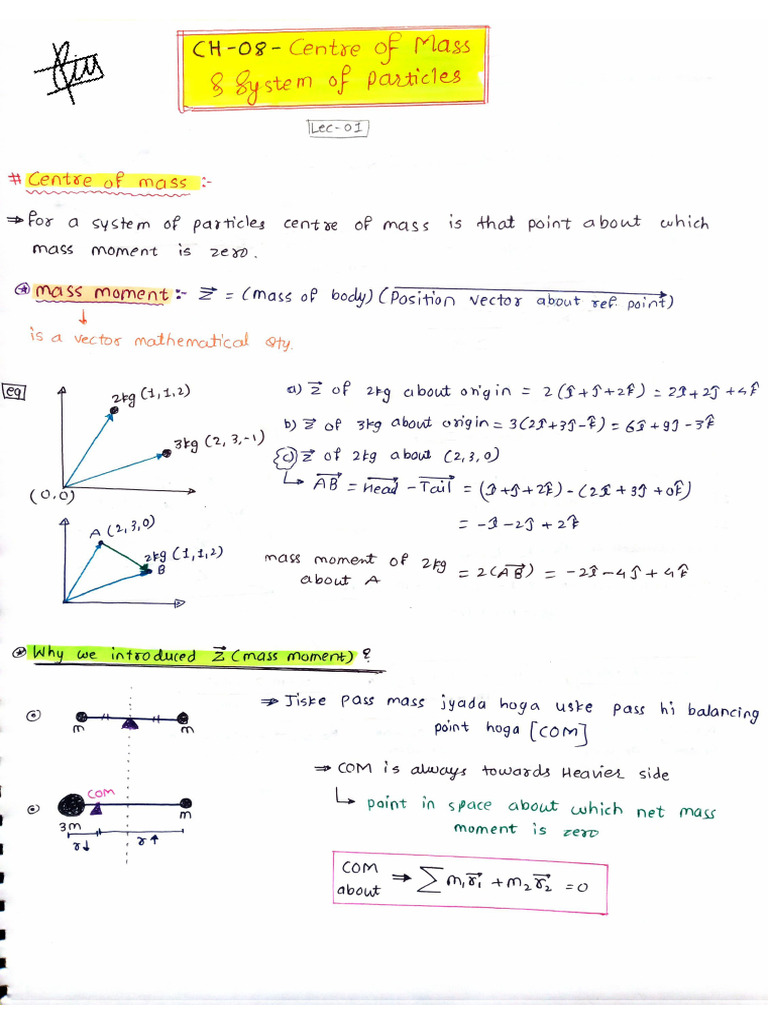 CH-08- Centre of Mass
& System of Particles
Lec-01
# Centre of mass :-
⇒ For a system of particles centre of mass is that point about which
mass moment is zero.
⊛ mass moment :- Z⃗ = (mass of body) (Position vector about ref. point)
↓
is a vector mathematical Qty.
eg
2kg (1,1,2)
3kg (2,3,-1)
(0,0)
a) Z⃗ of 2kg about origin = 2(î+ĵ+2k̂) = 2î+2ĵ+4k̂
b) Z⃗ of 3kg about origin = 3(2î+3ĵ-k̂) = 6î+9ĵ-3k̂
c) Z⃗ of 2kg about (2,3,0)
↳ AB⃗ = Head - Tail = (î+ĵ+2k̂)-(2î+3ĵ+0k̂)
= -î-2ĵ+2k̂
A (2,3,0)
2kg (1,1,2)
B
mass moment of 2kg
about A = 2(AB⃗) = -2î-4ĵ+4k̂
⊛ Why we introduced Z⃗ (mass moment) ?
m m
⇒ Jiske pass mass jyada hoga uske pass hi balancing
point hoga [COM]
⇒ COM is always towards Heavier side
↳ point in space about which net mass
moment is zero
COM
3m m
r↓ r↑
COM
about ⇒ ∑ m₁r⃗₁ + m₂r⃗₂ = 0